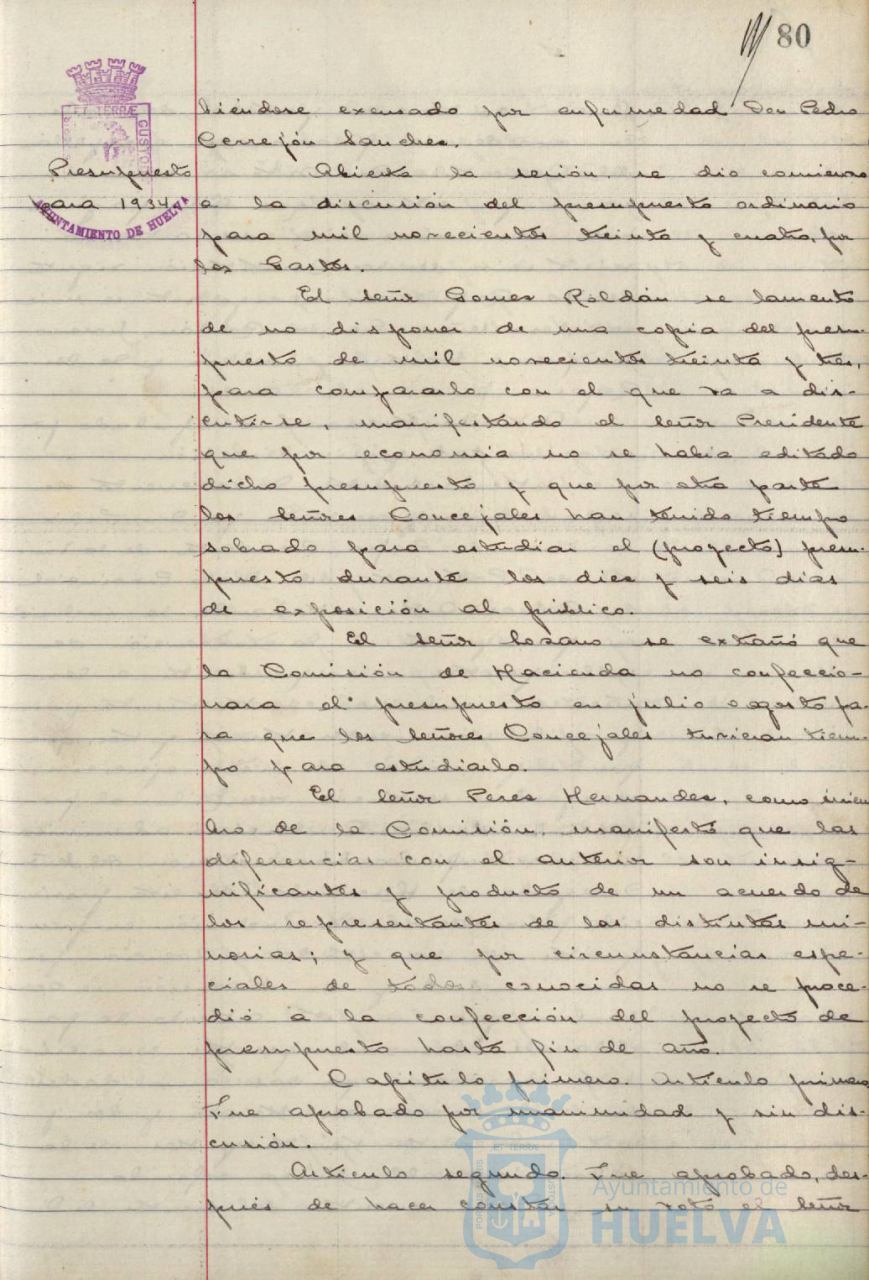 80
biéndose excusado por enfermedad Don Pedro
Cerrejón Sanches.
Presupuesto
para 1934
AYUNTAMIENTO DE HUELVA
Abierta la sesión, se dio comienzo
a la discusión del presupuesto ordinario
para mil novecientos treinta y cuatro, por
los Gastos.
El señor Gomes Roldán se lamentó
de no disponer de una copia del presu-
puesto de mil novecientos treinta y tres,
para compararlo con el que va a dis-
cutirse, manifestando el señor Presidente
que por economia no se habia editado
dicho presupuesto y que por otra parte
los señores Concejales han tenido tiempo
sobrado para estudiar el (proyecto) presu-
puesto durante los dies y seis dias
de exposición al público.
El señor Lozano se extrañó que
la Comisión de Hacienda no confeccio-
nara el presupuesto en julio o agosto pa-
ra que los señores Concejales tuvieran tiem-
po para estudiarlo.
El señor Peres Hernandes, como miem
bro de la Comisión, manifestó que las
diferencias con el anterior son insig-
nificantes y producto de un acuerdo de
los representantes de las distintas mi-
norias; y que por circunstancias espe-
ciales de todos conocidas no se proce-
dió a la confección del proyecto de
presupuesto hasta fin de año.
Capitulo primero. Articulo primero
Fue aprobado por unanimidad y sin dis-
cusión.
Articulo segundo. Fue aprobado, des-
pués de hacer constar su voto el señor
Ayuntamiento de
HUELVA